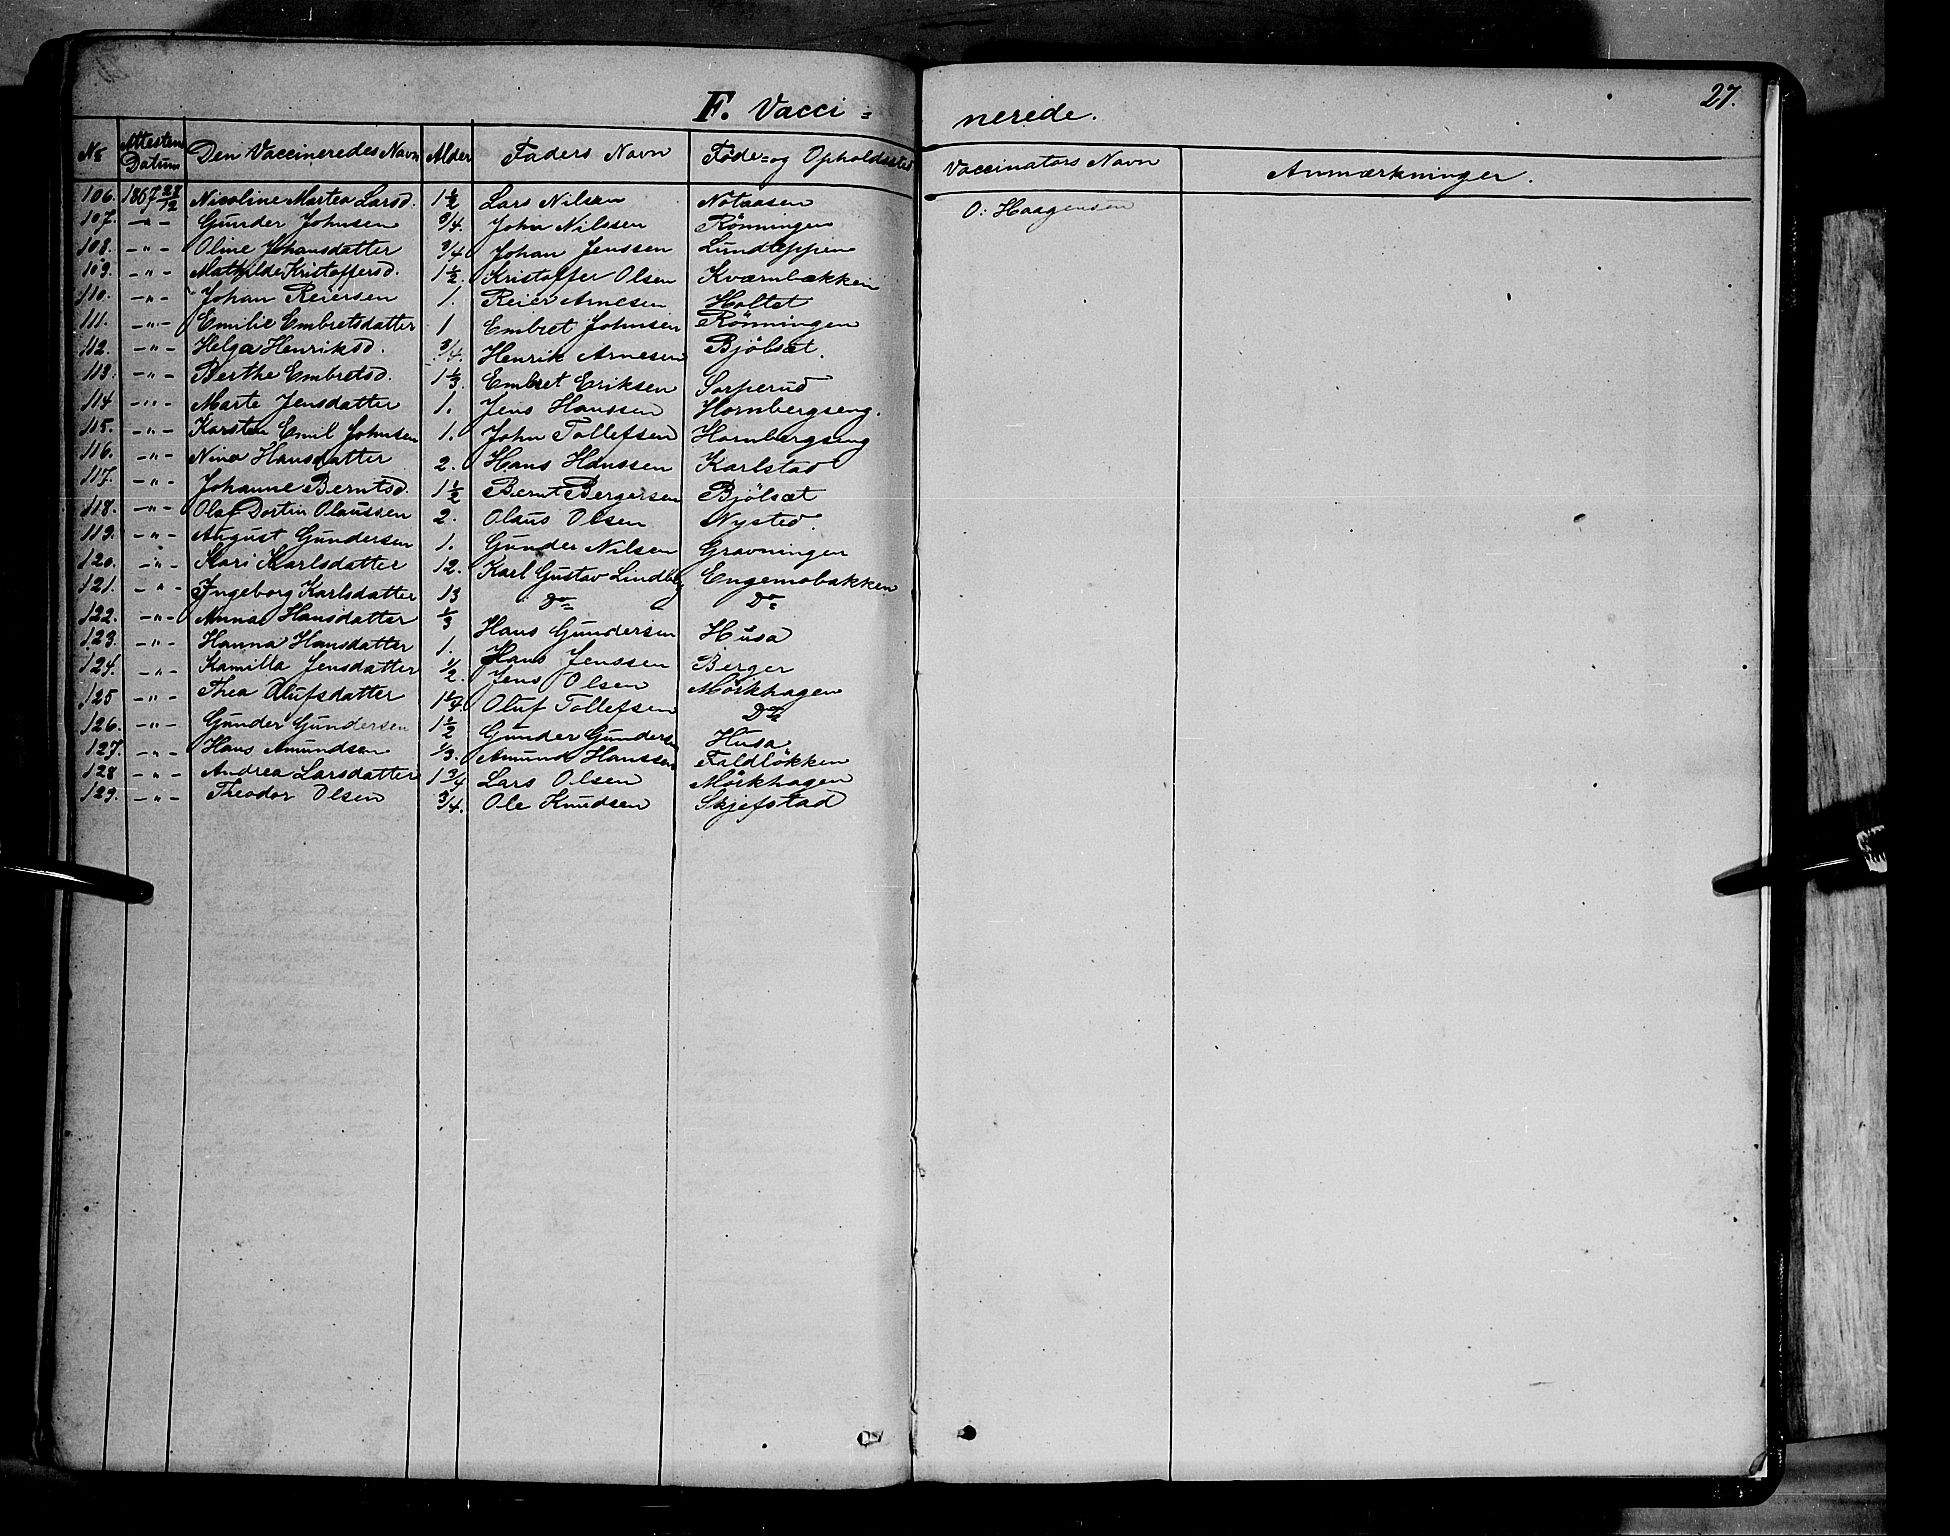 27.
F. Vacci = nerede.
No Attesten Datum Den Vaccineredes Navn Alder Faders Navn Føde= og Opholdssted Vaccinators Navn Anmærkninger.
106. 1867 28/12 Nicoline Martea Larsd. 1 1/2 Lars Nilsen Notaasen O: Haagensen
107. -"- Gunder Johnsen 3/4. John Nilssen Rönningen
108. -"- Oline Johansdatter 3/4 Johan Jenssen Lundteppen
109. -"- Mathilde Kristoffersd. 1 1/2. Kristoffer Olsen Kværnbækken
110. -"- Johan Reiersen 1. Reier Arnesen Holtet
111. -"- Emilie Embretsdatter 1 Embret Johnsen Rönningen
112. -"- Helga Henriksd. 3/4. Henrik Arnesen Bjölsæt.
113. -"- Berthe Embretsd. 1 1/3. Embret Eriksen Sorperud
114 -"- Marte Jensdatter 1. Jens Hanssen Hornbergseng.
115. -"- Karsten Emil Johnsen 1. John Tollefsen Hornbergseng
116. -"- Nina Hansdatter 2. Hans Hanssen Karlstad
117. -"- Johanne Berntsd. 1 1/2 Bernt Bergersen Bjölsæt
118. -"- Olaf Dortin Olaussen 2. Olaus Olsen Nysted.
119. -"- August Gundersen 1. Gunder Nilsen Gravningen
120. -"- Kari Karlsdatter 12. Karl Gustav Lindberg Engemobakken
121. -"- Ingeborg Karlsdatter 13 Do Do
122. -"- Anna Hansdatter 1/3 Hans Gundersen Husa
123. -"- Hanna Hansdatter 1. Hans Jenssen Berger
124. -"- Kamilla Jensdatter 1/2. Jens Olsen Mörkhagen
125 -"- Thea Olufsdatter 1 1/4. Oluf Tollefsen Do
126. -"- Gunder Gundersen 1 1/2 Gunder Gundersen Husa
127. -"- Hans Amundsen 1/3. Amund Hanssen Faldlökken
128 -"- Andrea Larsdatter 1 3/4 Lars Olsen Mörkhagen
129. -"- Theodor Olsen 3/4. Ole Knudsen Skjefstad